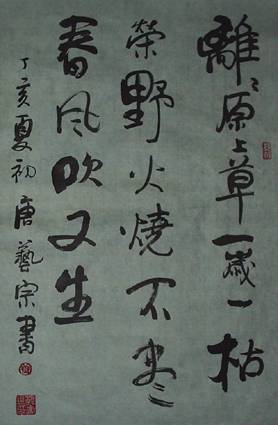 離〻原上草一歲一枯
榮野火燒不盡
春風吹又生
丁亥夏初唐藝宗書